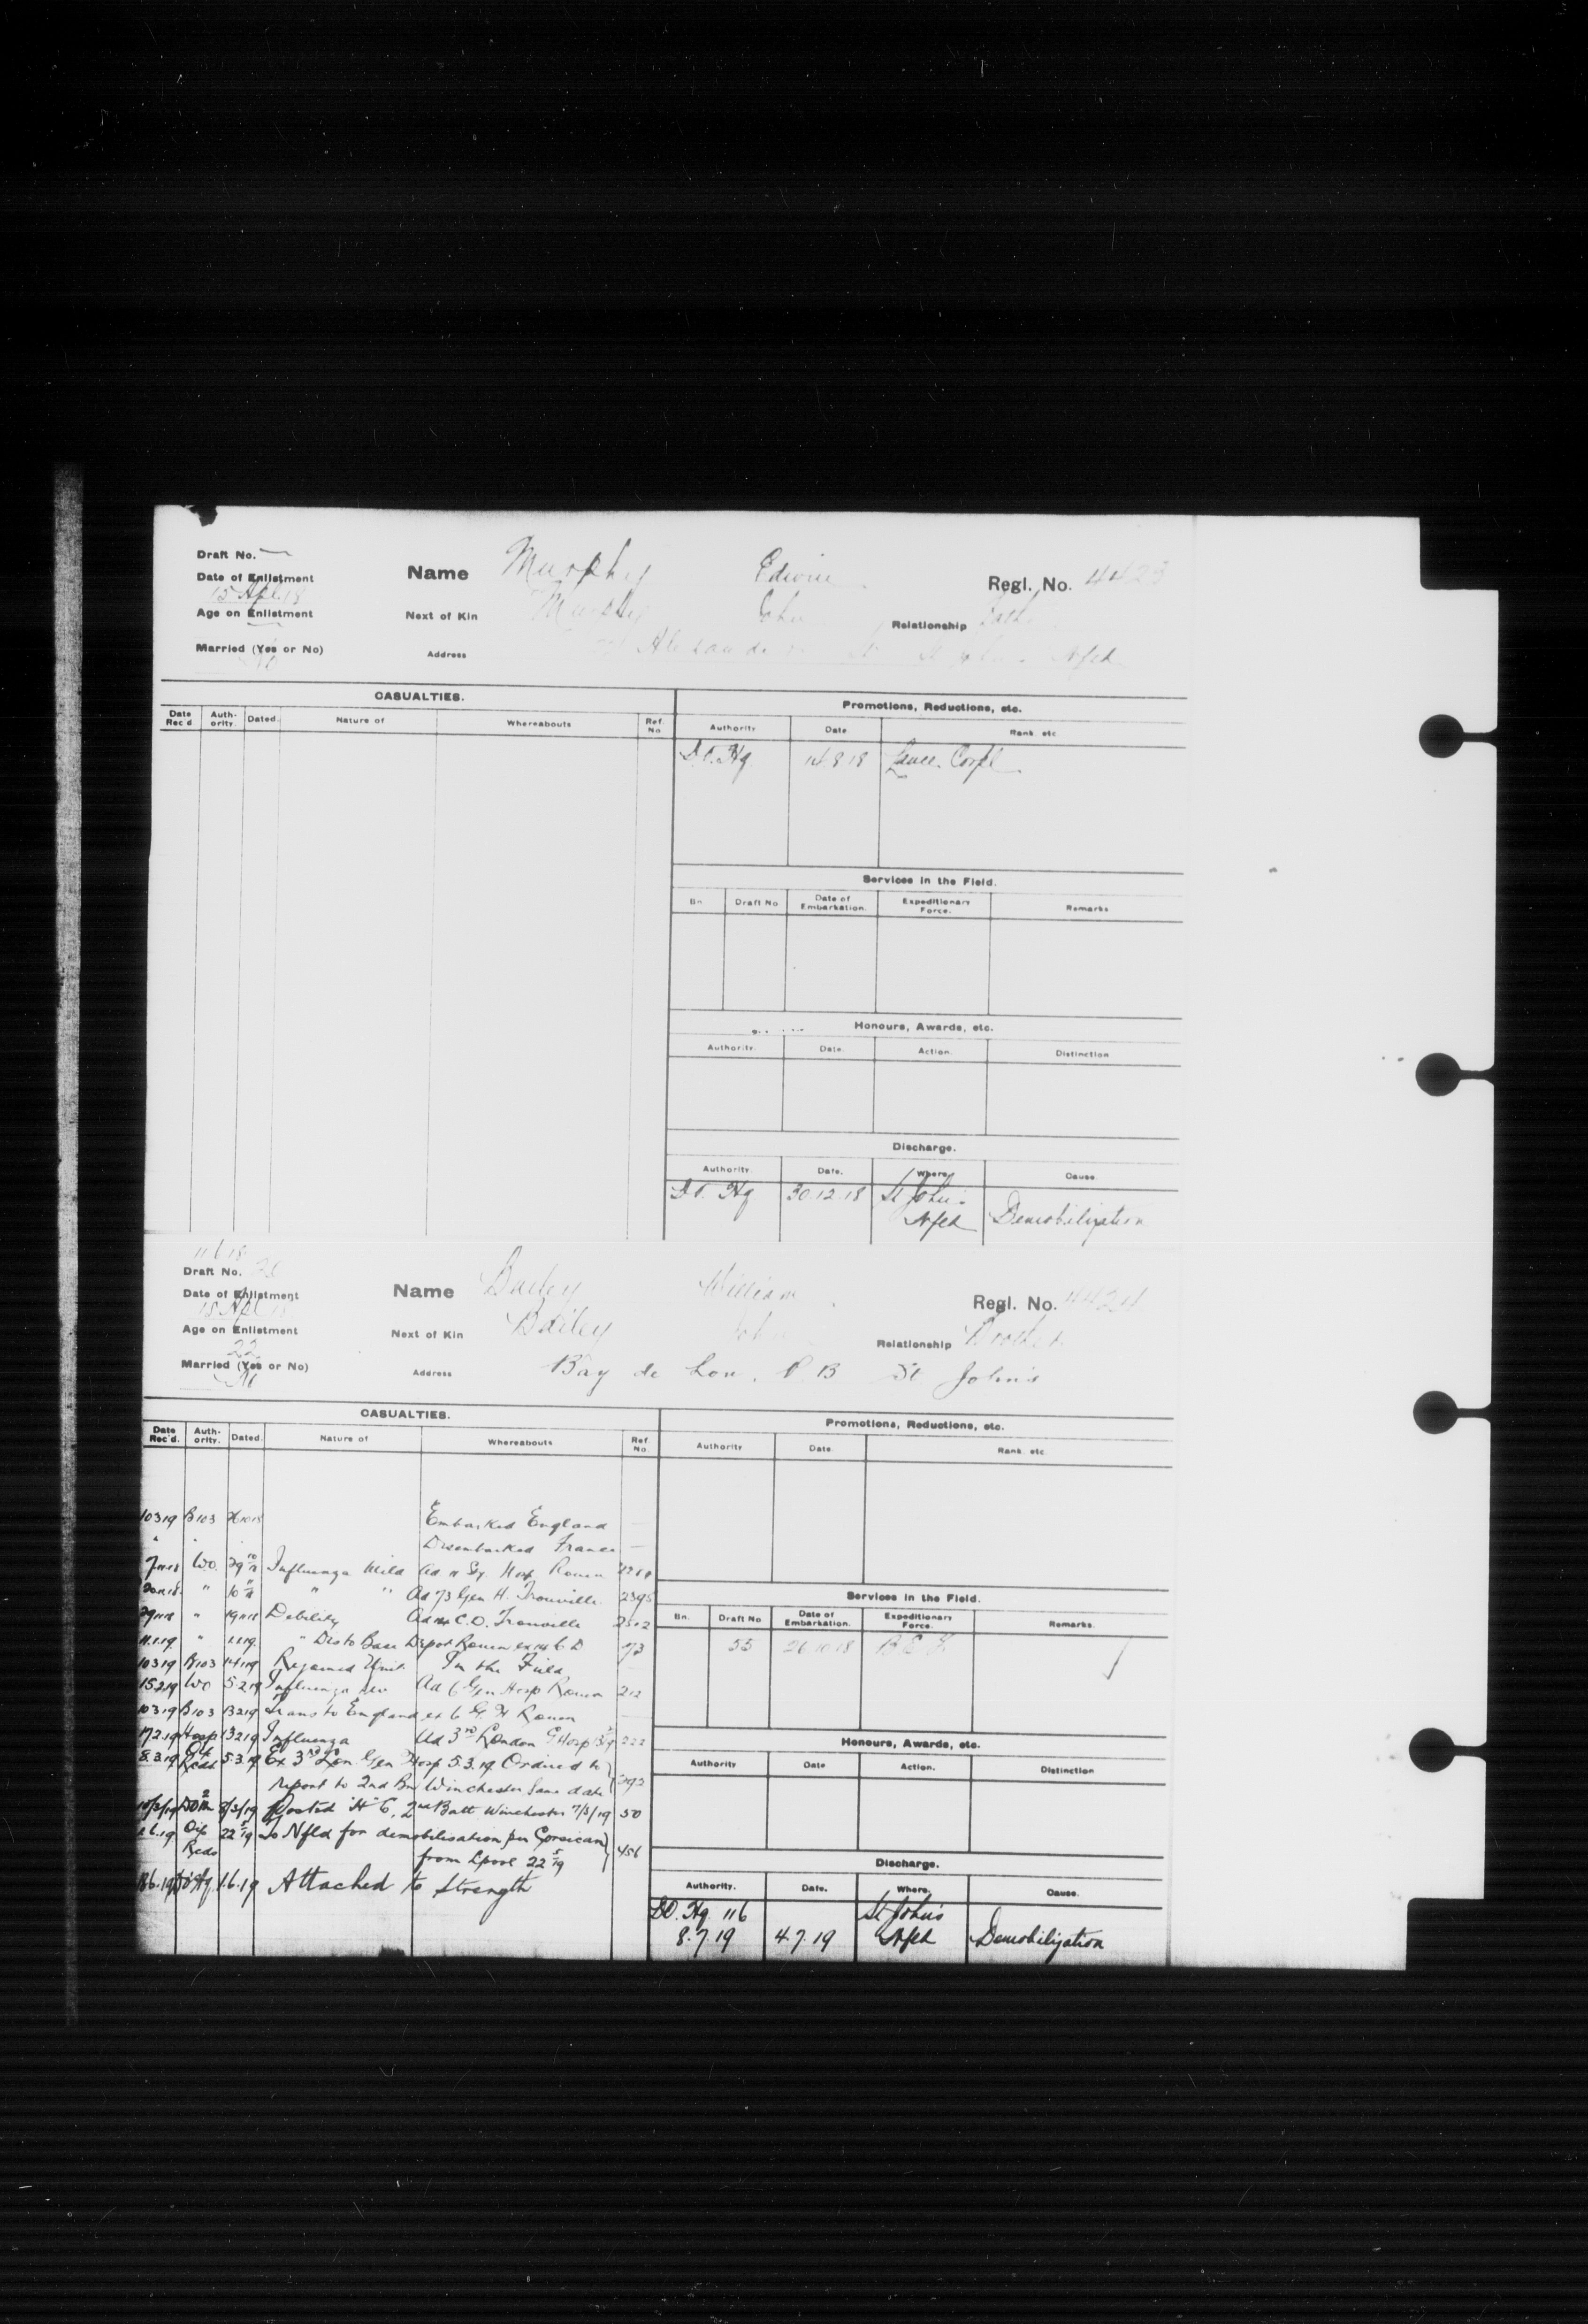 Draft No. —
Date of Enlistment
15 Apl. 18
Age on Enlistment
Married (Yes or No)
No
Name Murphy Edwin Regl. No. 4423
Next of Kin Murphy John Relationship Father
Address Alexander St St John's Nfld
CASUALTIES.
Date Rec'd Auth-ority. Dated. Nature of Whereabouts Ref. No
Promotions, Reductions, etc.
Authority Date Rank etc
D.O. Hq. 14 8 18 Lance Corpl
Services in the Field.
Bn Draft No Date of Embarkation. Expeditionary Force. Remarks
Honours, Awards, etc.
Authority. Date. Action. Distinction
Discharge.
Authority. Date. Where. Cause
D.O. Hq 30.12.18 St John's Nfld Demobilization
11 6 18
Draft No.
Date of Enlistment
15 Apl 18
Age on Enlistment
22
Married (Yes or No)
No
Name Bailey William Regl. No. 4424
Next of Kin Bailey John Relationship Brother
Address Bay de Lou. P. B St John's
CASUALTIES.
Date Rec'd. Auth-ority. Dated. Nature of Whereabouts Ref. No.
10 3 19 B103 26 10 18 Embarked England —
" " Disembarked France —
7 11 18 W.O. 29 10/18 Influenza Mild Ad 11 Sy. Hosp Rouen
20 11 18 " 10 11/18 " " Ad 73 Gen H. Trouville 2395
29 11 18 " 19 11 18 Debility Ad 14 C.D. Trouville 2512
11.1.19 " 1.1.19 " Dis to Base Depot Rouen ex 14 C D 1/3
10 3 19 B103 14 1 19 Rejoined Unit In the Field
15 2 19 WO 5.2.19 Influenza Ad 6 Gen Hosp Rouen 212
10 3 19 B103 13 2 19 Trans to England ex 6 G. H Rouen —
17.2.19 Hosp 13 2 19 Influenza Ad 3rd London G Hosp 222
8.3.19 Off Reds 5.3.19 Ex 3rd Lon Gen Hosp 5.3.19 Ordered to
report to 2nd Bn Winchester same date 292
10/3/19 8/3/19 Posted "H" C, 2nd Batt Winchester 7/3/19 50
Reds 22 5/19 To Nfld for demobilisation per Corsican
from Lpool 22 5/19 456
D.O. Hq 1.6.19 Attached to Strength
Promotions, Reductions, etc.
Authority Date. Rank etc.
Services in the Field.
Bn. Draft No Date of Embarkation. Expeditionary Force. Remarks.
55 26 10 18 B E F
Honours, Awards, etc.
Authority Date Action. Distinction
Discharge.
Authority. Date. Where. Cause.
D.O. Hq. 116 St John's
8.7.19 4.7.19 Nfld Demobilization